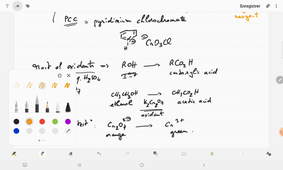 Enregistrer
reagent
PCC = pyridinium chlorochromate
CrO3Cl
H
oxidants
ROH → RCO2H
H2SO4
carboxylic acid
CH3CH2OH → CH3CO2H
ethanol K2Cr2O7 acetic acid
oxidant
test
Cr2O7 2- → Cr 3+
orange green